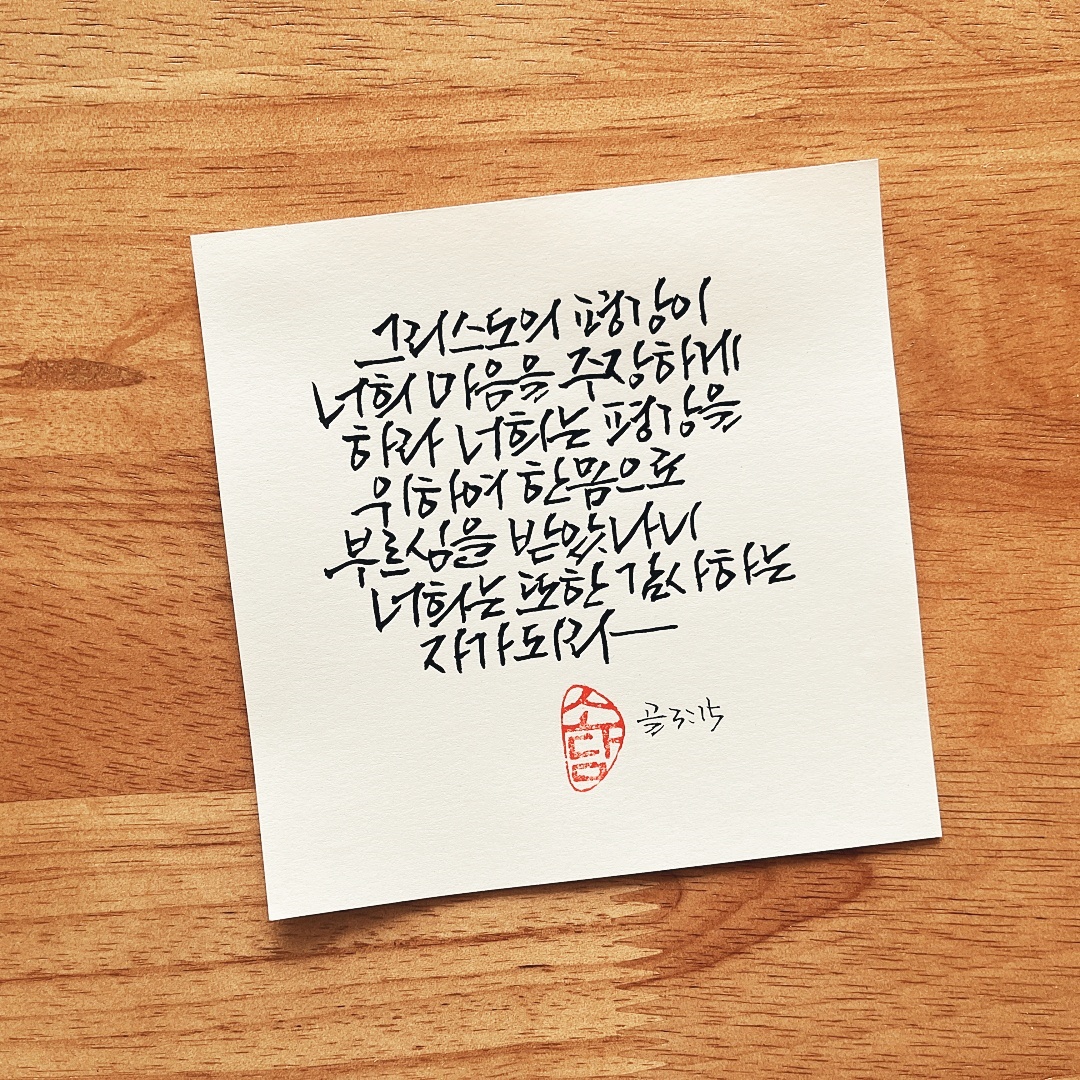 그리스도의 평강이
너희 마음을 주장하게
하라 너희는 평강을
위하여 한몸으로
부르심을 받았나니
너희는 또한 감사하는
자가 되라
소담
골 3:15